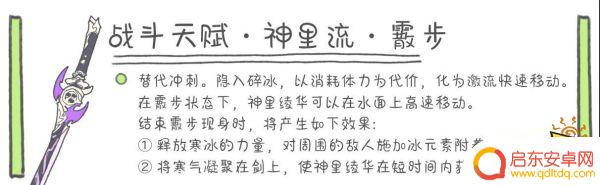 战斗天赋·神里流·霰步
替代冲刺。隐入碎冰，以消耗体力为代价，化为激流快速移动。
在霰步状态下，神里绫华可以在水面上高速移动。
结束霰步现身时，将产生如下效果：
①释放寒冰的力量，对周围的敌人施加冰元素附着
②将寒气凝聚在剑上，使神里绫华在短时间内
启东安卓网
www.qdltdq.com